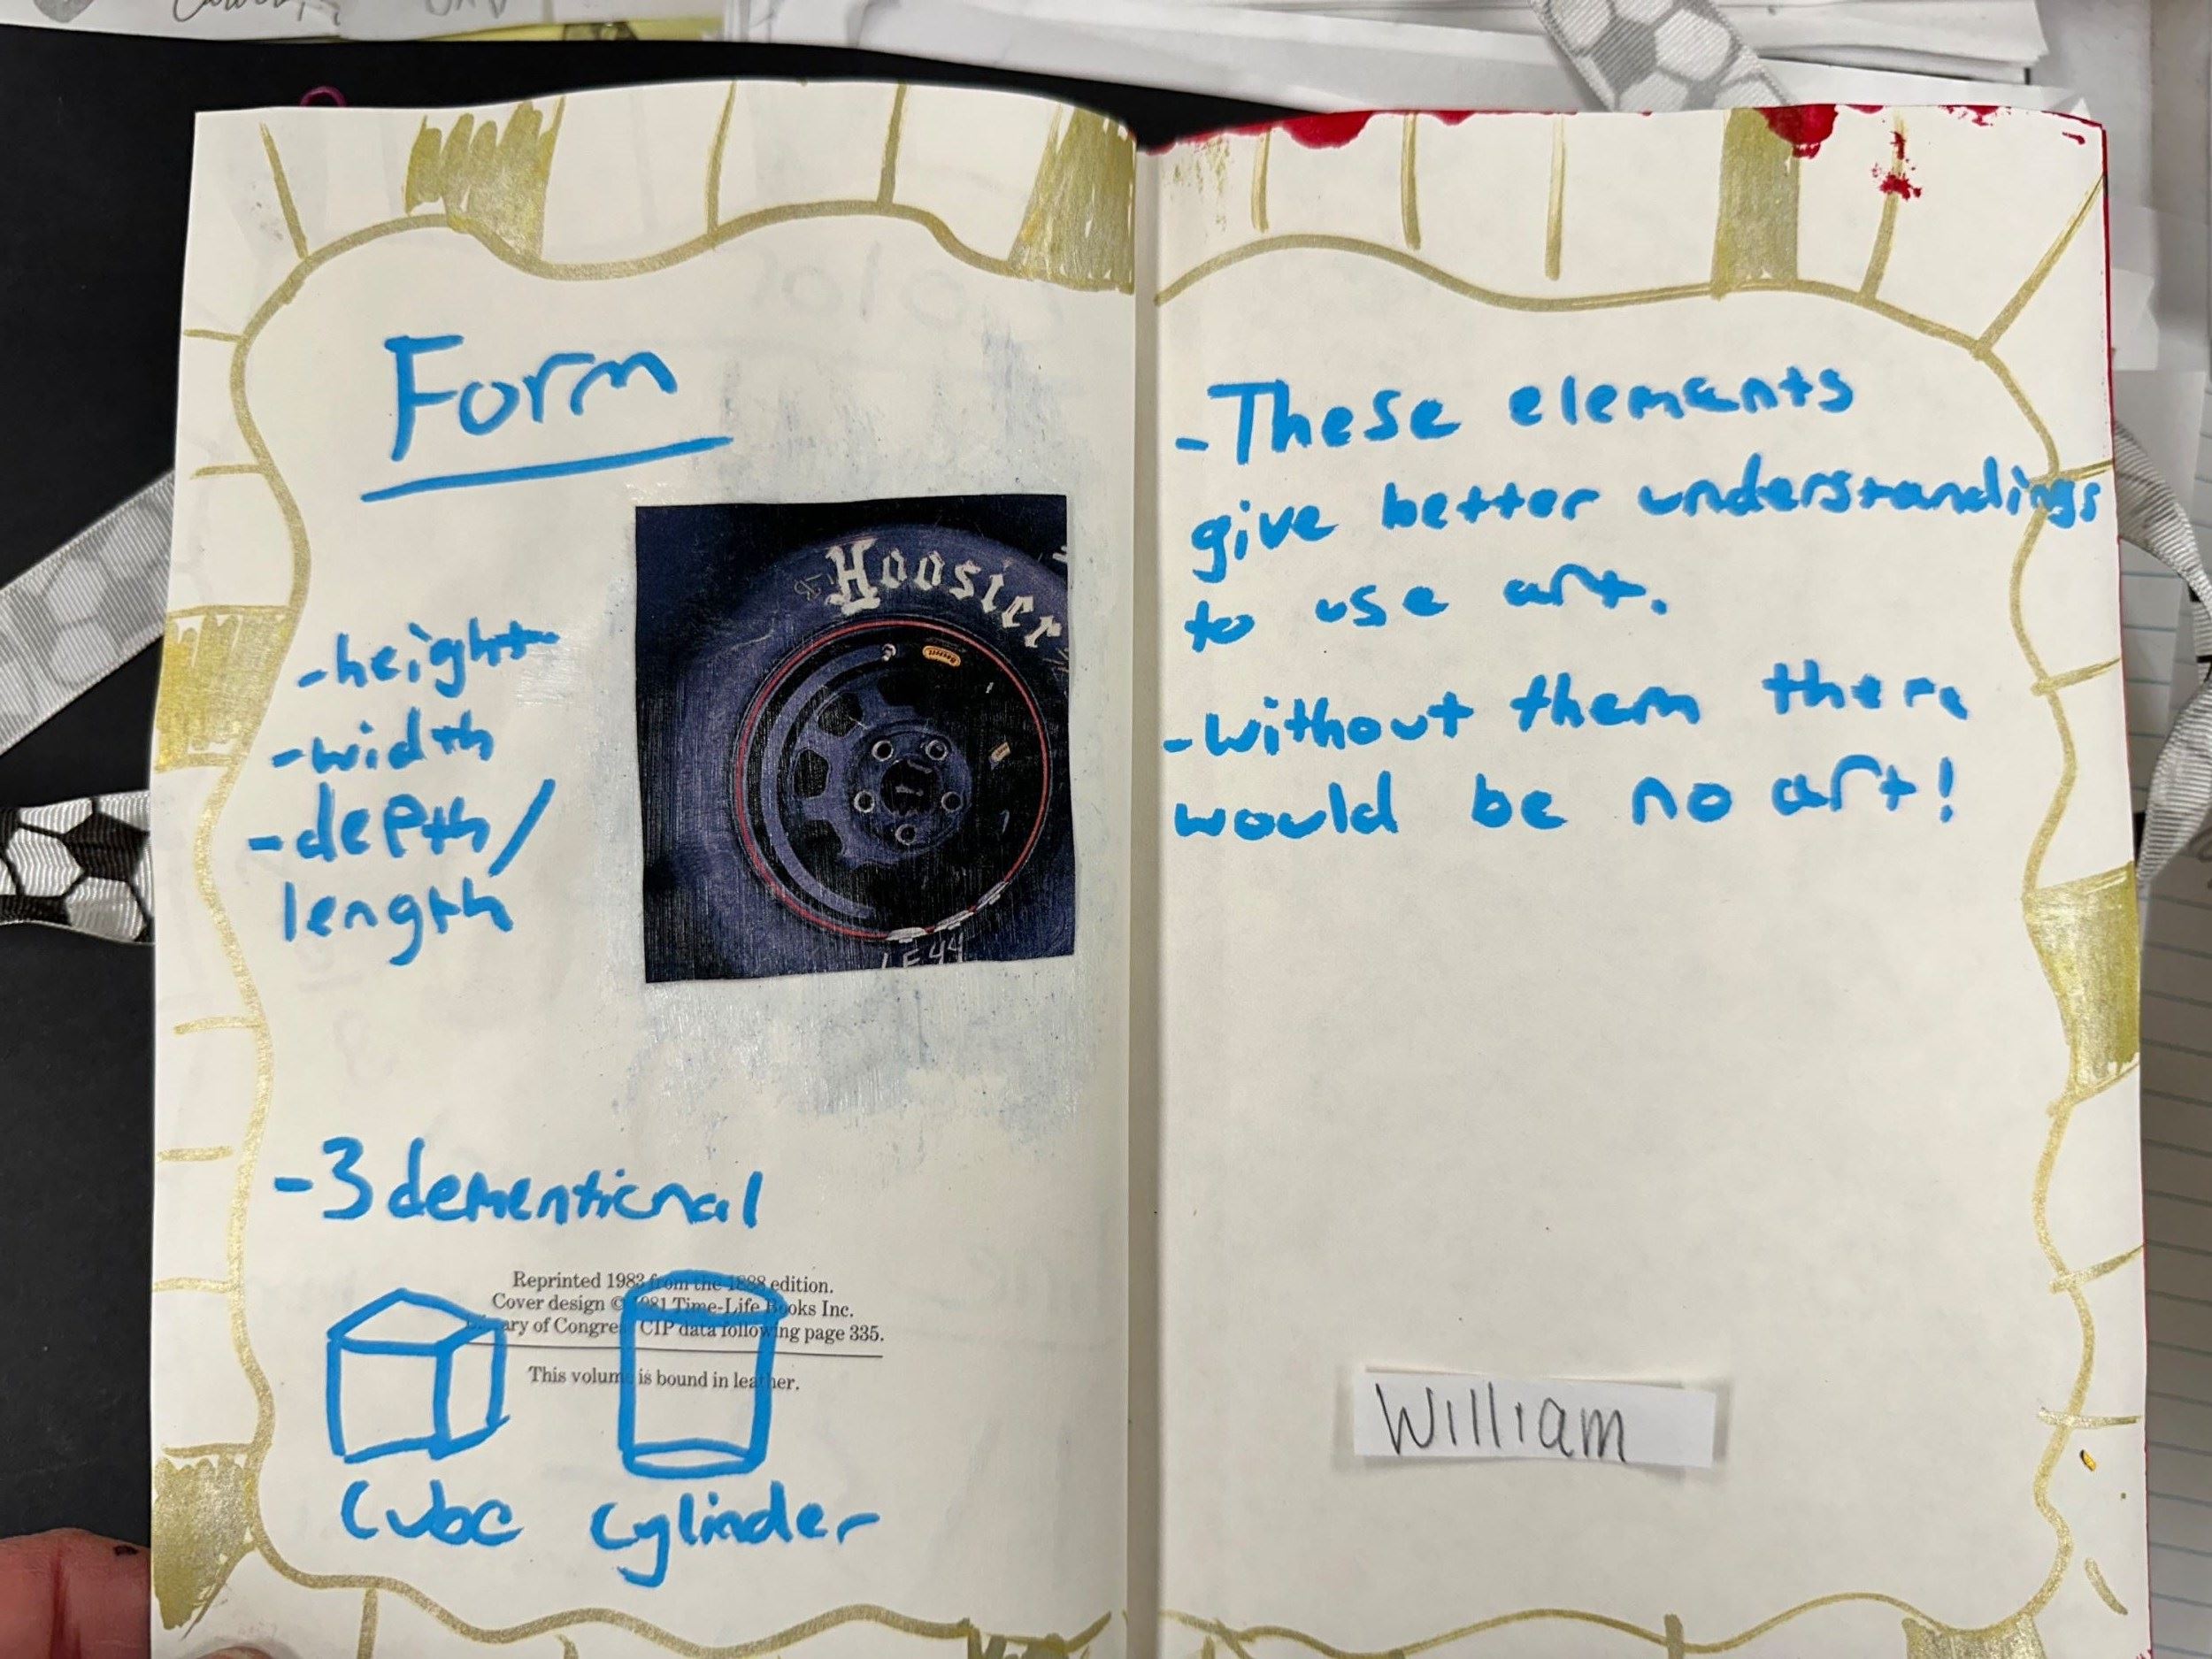 Form
Hoosier
-height
-width
-depth/
length
LF44
-3 dementional
Reprinted 1983 from the 1888 edition.
Cover design © 1981 Time-Life Books Inc.
Library of Congress CIP data following page 335.
This volume is bound in leather.
Cube cylinder
-These elements
give better understandings
to use art.
-without them there
would be no art!
William